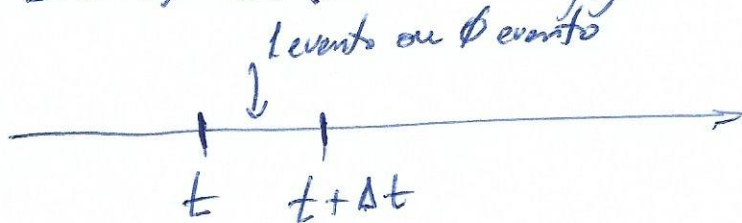 1 evento ou Ø evento
t t + Δt